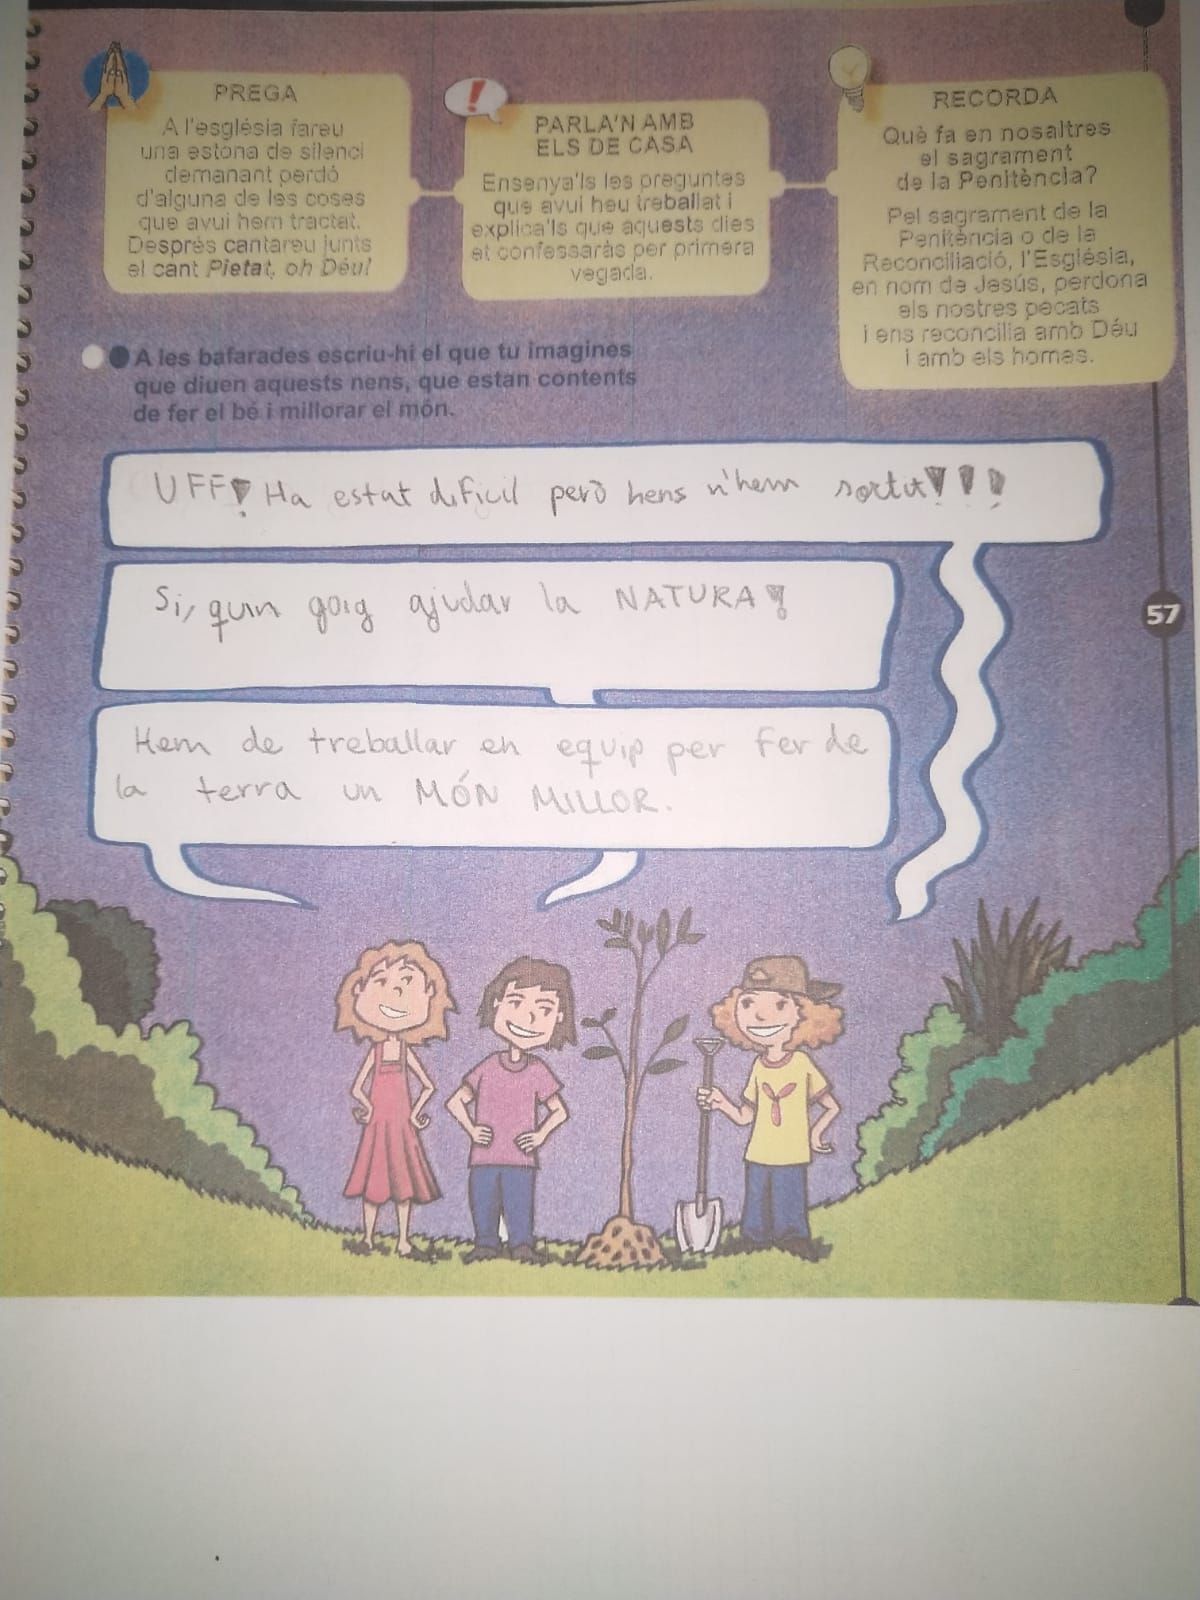 PREGA
A l'església fareu
una estona de silenci
demanant perdó
d'alguna de les coses
que avui hem tractat.
Després cantareu junts
el cant Pietat, oh Déu!
!
PARLA'N AMB
ELS DE CASA
Ensenya'ls les preguntes
que avui heu treballat i
explica'ls que aquests dies
et confessaràs per primera
vegada.
RECORDA
Què fa en nosaltres
el sagrament
de la Penitència?
Pel sagrament de la
Penitència o de la
Reconciliació, l'Església,
en nom de Jesús, perdona
els nostres pecats
i ens reconcilia amb Déu
i amb els homes.
A les bafarades escriu-hi el que tu imagines
que diuen aquests nens, que estan contents
de fer el bé i millorar el món.
UFF! Ha estat dificil però hens n'hem sortit!!!
Si, quin goig ajudar la NATURA!
57
Hem de treballar en equip per fer de
la terra un MÓN MILLOR.